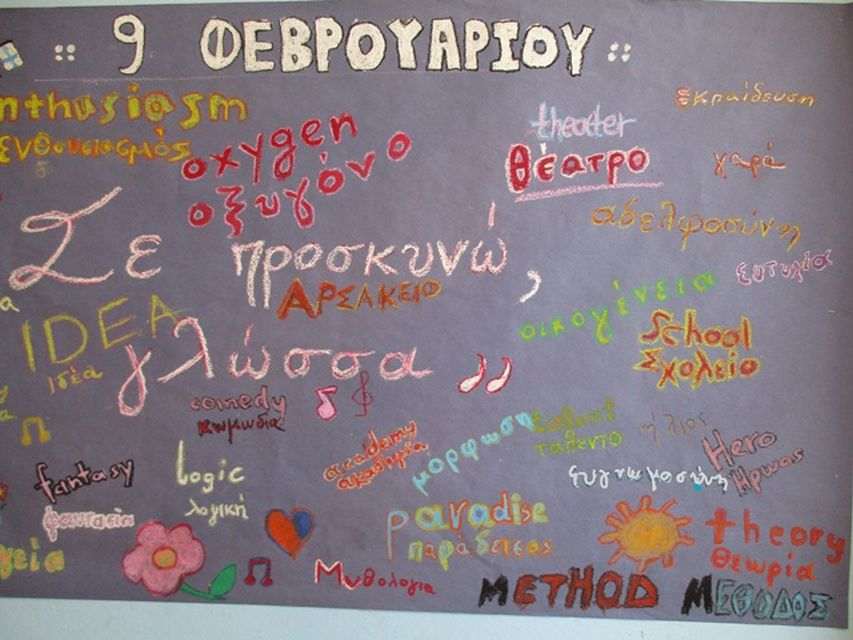 9 ΦΕΒΡΟΥΑΡΙΟΥ
nthusiasm
ενθουσιασμός
oxygen
οξυγόνο
theater
θέατρο
εκπαίδευση
χαρά
αδελφοσύνη
Σε προσκυνώ,
ΑΡΣΑΚΕΙΟ
ευτυχία
οικογένεια
IDEA
ιδέα
γλώσσα
School
Σχολείο
comedy
κωμωδία
academy
ακαδημία
μόρφωση
talent
ταλέντο
ήλιος
Hero
Ήρωας
fantasy
φαντασία
logic
λογική
ευγνωμοσύνη
paradise
παράδεισος
theory
θεωρία
γεία
Μυθολογία
METHOD
ΜΕΘΟΔΟΣ